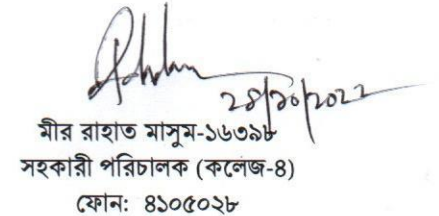 ২৪/১০/২০২২
মীর রাহাত মাসুম-১৬৩৯৮
সহকারী পরিচালক (কলেজ-৪)
ফোন: ৪১০৫০২৮